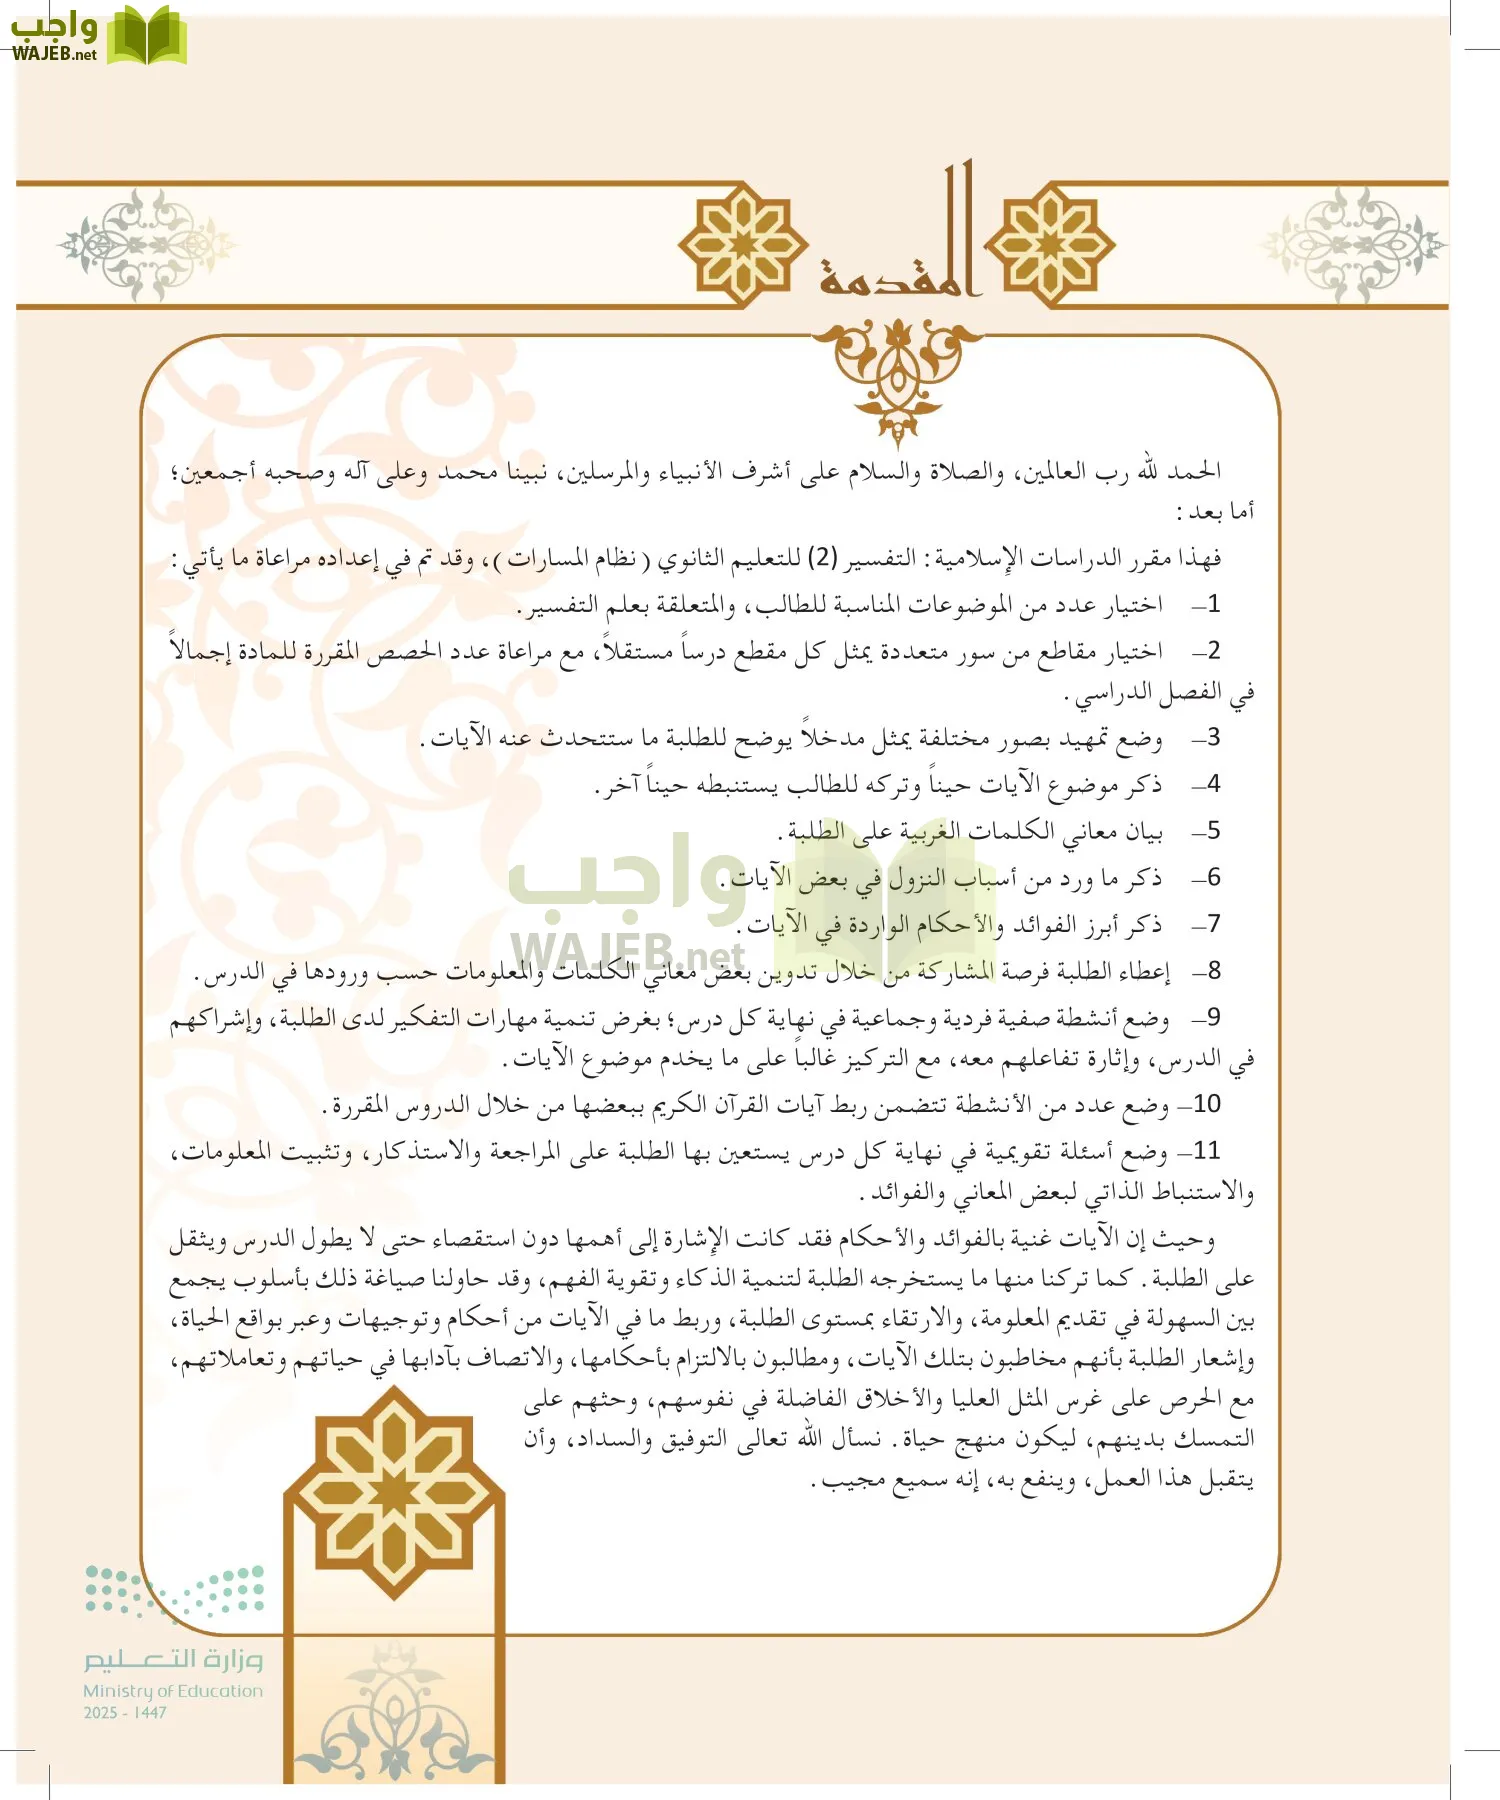 واجب
WAJEB.net
المقدمة
الحمد لله رب العالمين، والصلاة والسلام على أشرف الأنبياء والمرسلين، نبينا محمد وعلى آله وصحبه أجمعين؛
أما بعد:
فهذا مقرر الدراسات الإسلامية: التفسير (2) للتعليم الثانوي (نظام المسارات)، وقد تم في إعداده مراعاة ما يأتي:
1– اختيار عدد من الموضوعات المناسبة للطالب، والمتعلقة بعلم التفسير.
2– اختيار مقاطع من سور متعددة يمثل كل مقطع درساً مستقلاً، مع مراعاة عدد الحصص المقررة للمادة إجمالاً
في الفصل الدراسي.
3– وضع تمهيد بصور مختلفة يمثل مدخلاً يوضح للطلبة ما ستتحدث عنه الآيات.
4– ذكر موضوع الآيات حيناً وتركه للطالب يستنبطه حيناً آخر.
5– بيان معاني الكلمات الغربية على الطلبة.
6– ذكر ما ورد من أسباب النزول في بعض الآيات.
7– ذكر أبرز الفوائد والأحكام الواردة في الآيات.
واجب
WAJEB.net
8– إعطاء الطلبة فرصة المشاركة من خلال تدوين بعض معاني الكلمات والمعلومات حسب ورودها في الدرس.
9– وضع أنشطة صفية فردية وجماعية في نهاية كل درس؛ بغرض تنمية مهارات التفكير لدى الطلبة، وإشراكهم
في الدرس، وإثارة تفاعلهم معه، مع التركيز غالباً على ما يخدم موضوع الآيات.
10– وضع عدد من الأنشطة تتضمن ربط آيات القرآن الكريم ببعضها من خلال الدروس المقررة.
11– وضع أسئلة تقويمية في نهاية كل درس يستعين بها الطلبة على المراجعة والاستذكار، وتثبيت المعلومات،
والاستنباط الذاتي لبعض المعاني والفوائد.
وحيث إن الآيات غنية بالفوائد والأحكام فقد كانت الإشارة إلى أهمها دون استقصاء حتى لا يطول الدرس ويثقل
على الطلبة. كما تركنا منها ما يستخرجه الطلبة لتنمية الذكاء وتقوية الفهم، وقد حاولنا صياغة ذلك بأسلوب يجمع
بين السهولة في تقديم المعلومة، والارتقاء بمستوى الطلبة، وربط ما في الآيات من أحكام وتوجيهات وعبر بواقع الحياة،
وإشعار الطلبة بأنهم مخاطبون بتلك الآيات، ومطالبون بالالتزام بأحكامها، والاتصاف بآدابها في حياتهم وتعاملاتهم،
مع الحرص على غرس المثل العليا والأخلاق الفاضلة في نفوسهم، وحثهم على
التمسك بدينهم، ليكون منهج حياة. نسأل الله تعالى التوفيق والسداد، وأن
يتقبل هذا العمل، وينفع به، إنه سميع مجيب.
وزارة التعليم
Ministry of Education
2025 - 1447